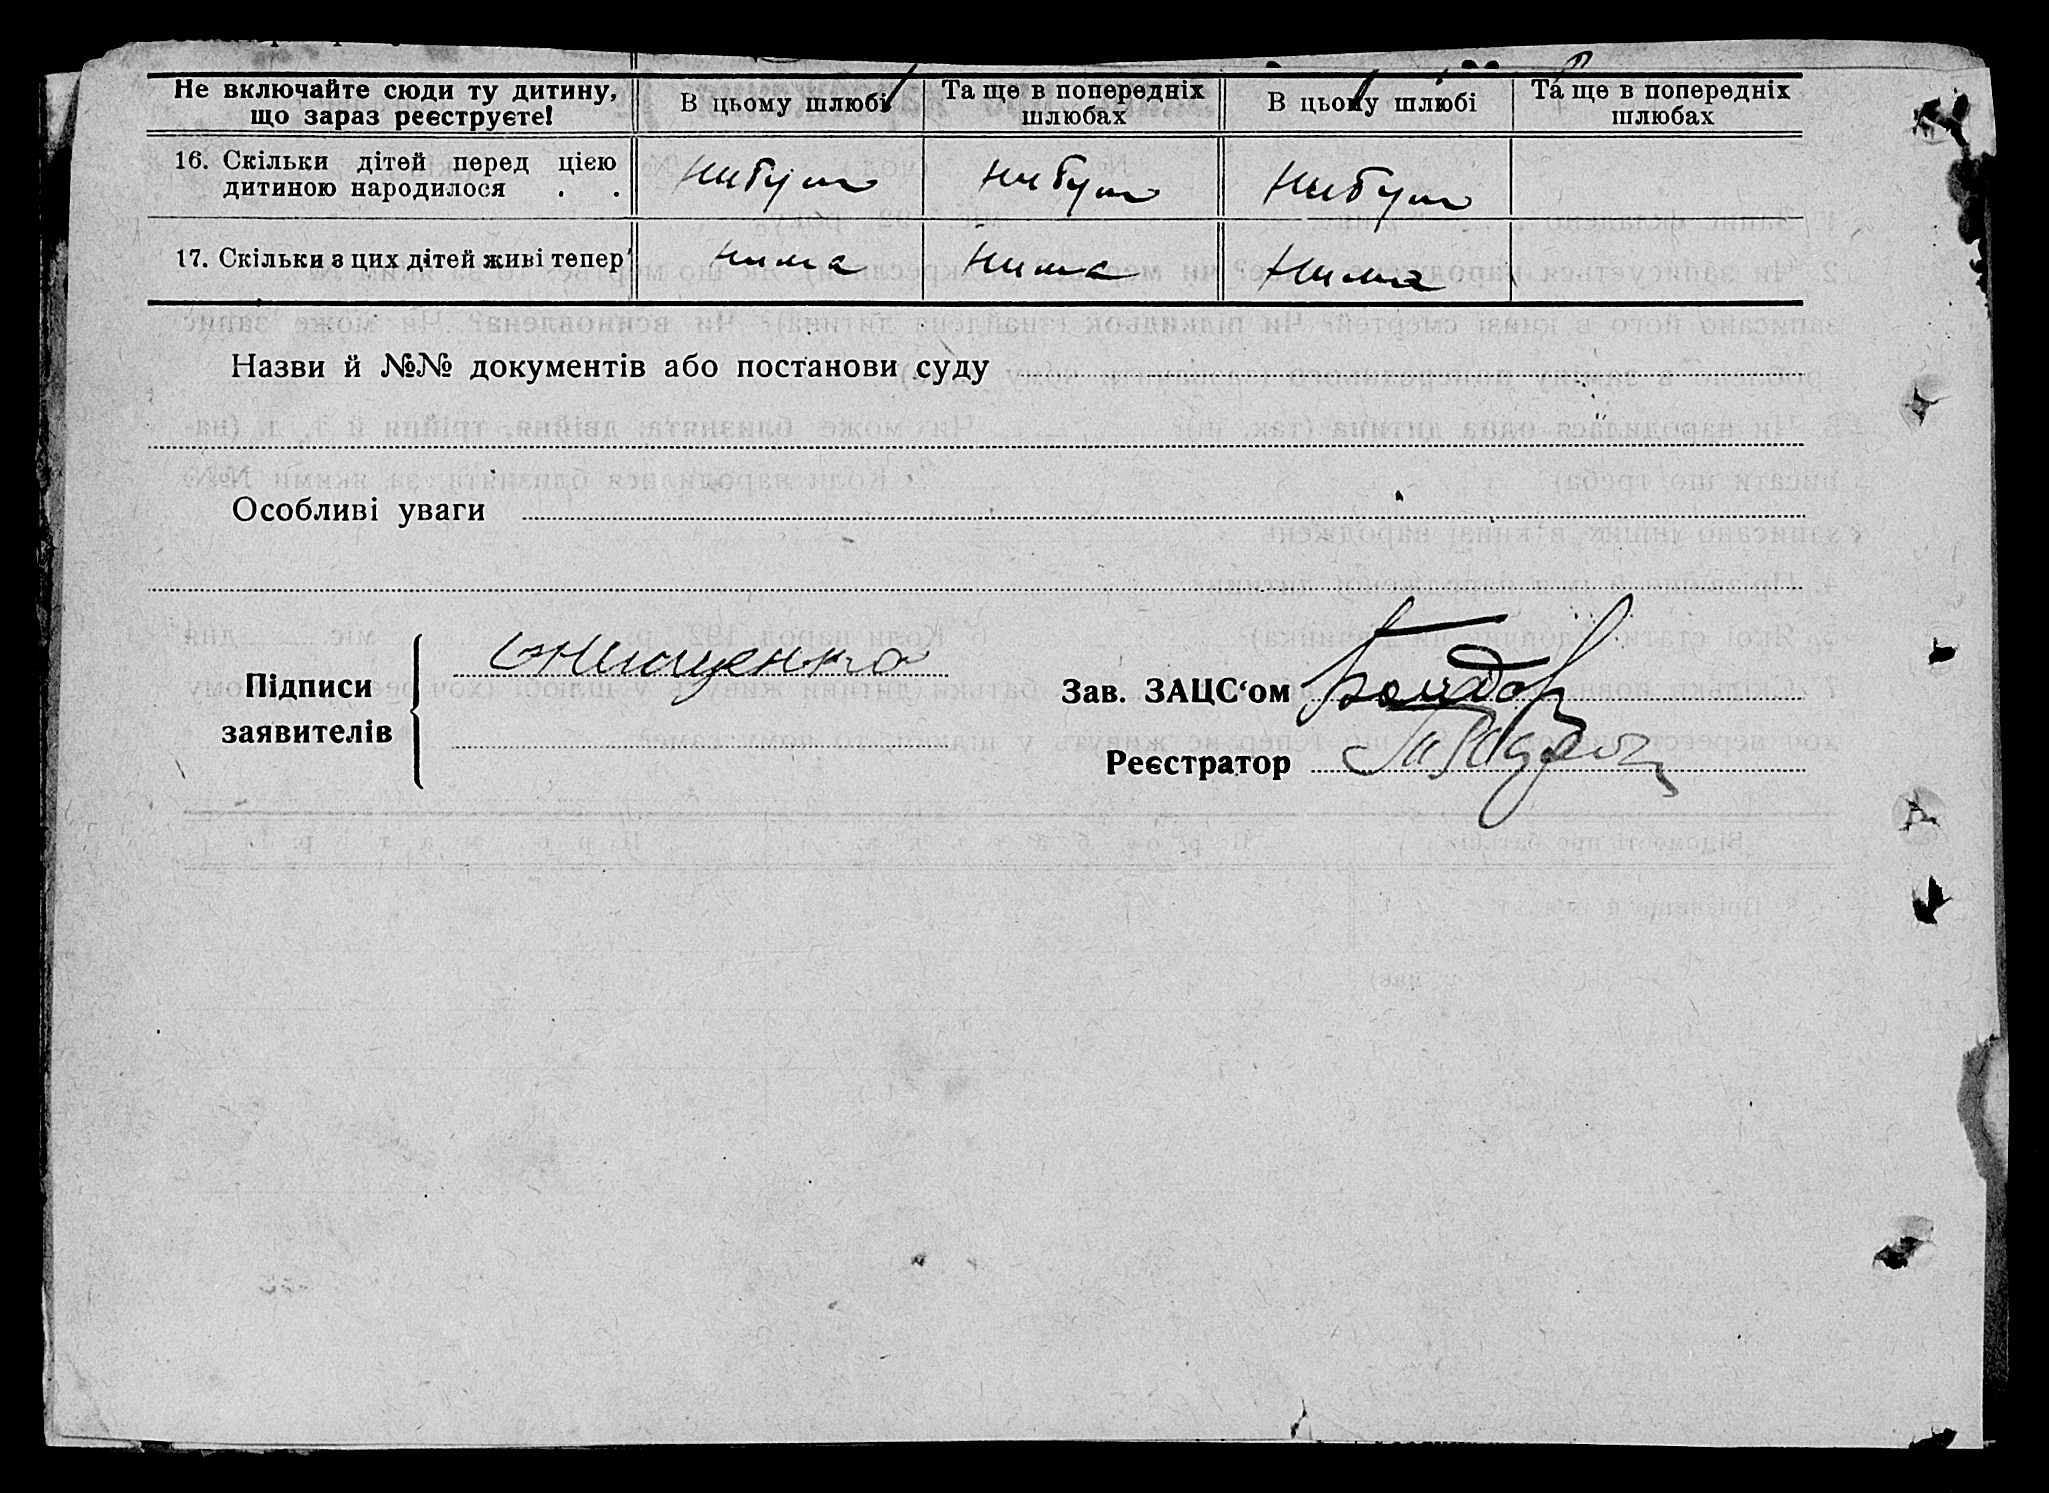 Не включайте сюди ту дитину, що зараз реєструєте!
В цьому шлюбі
Та ще в попередніх шлюбах
В цьому шлюбі
Та ще в попередніх шлюбах
16. Скільки дітей перед цією
дитиною народилося . .
нибуло
нибуло
нибуло
17. Скільки з цих дітей живі тепер
нима
нима
нима
Назви й №№ документів або постанови суду
Особливі уваги
Підписи
заявителів
Онищенко
Зав. ЗАЦС‘ом
Реєстратор